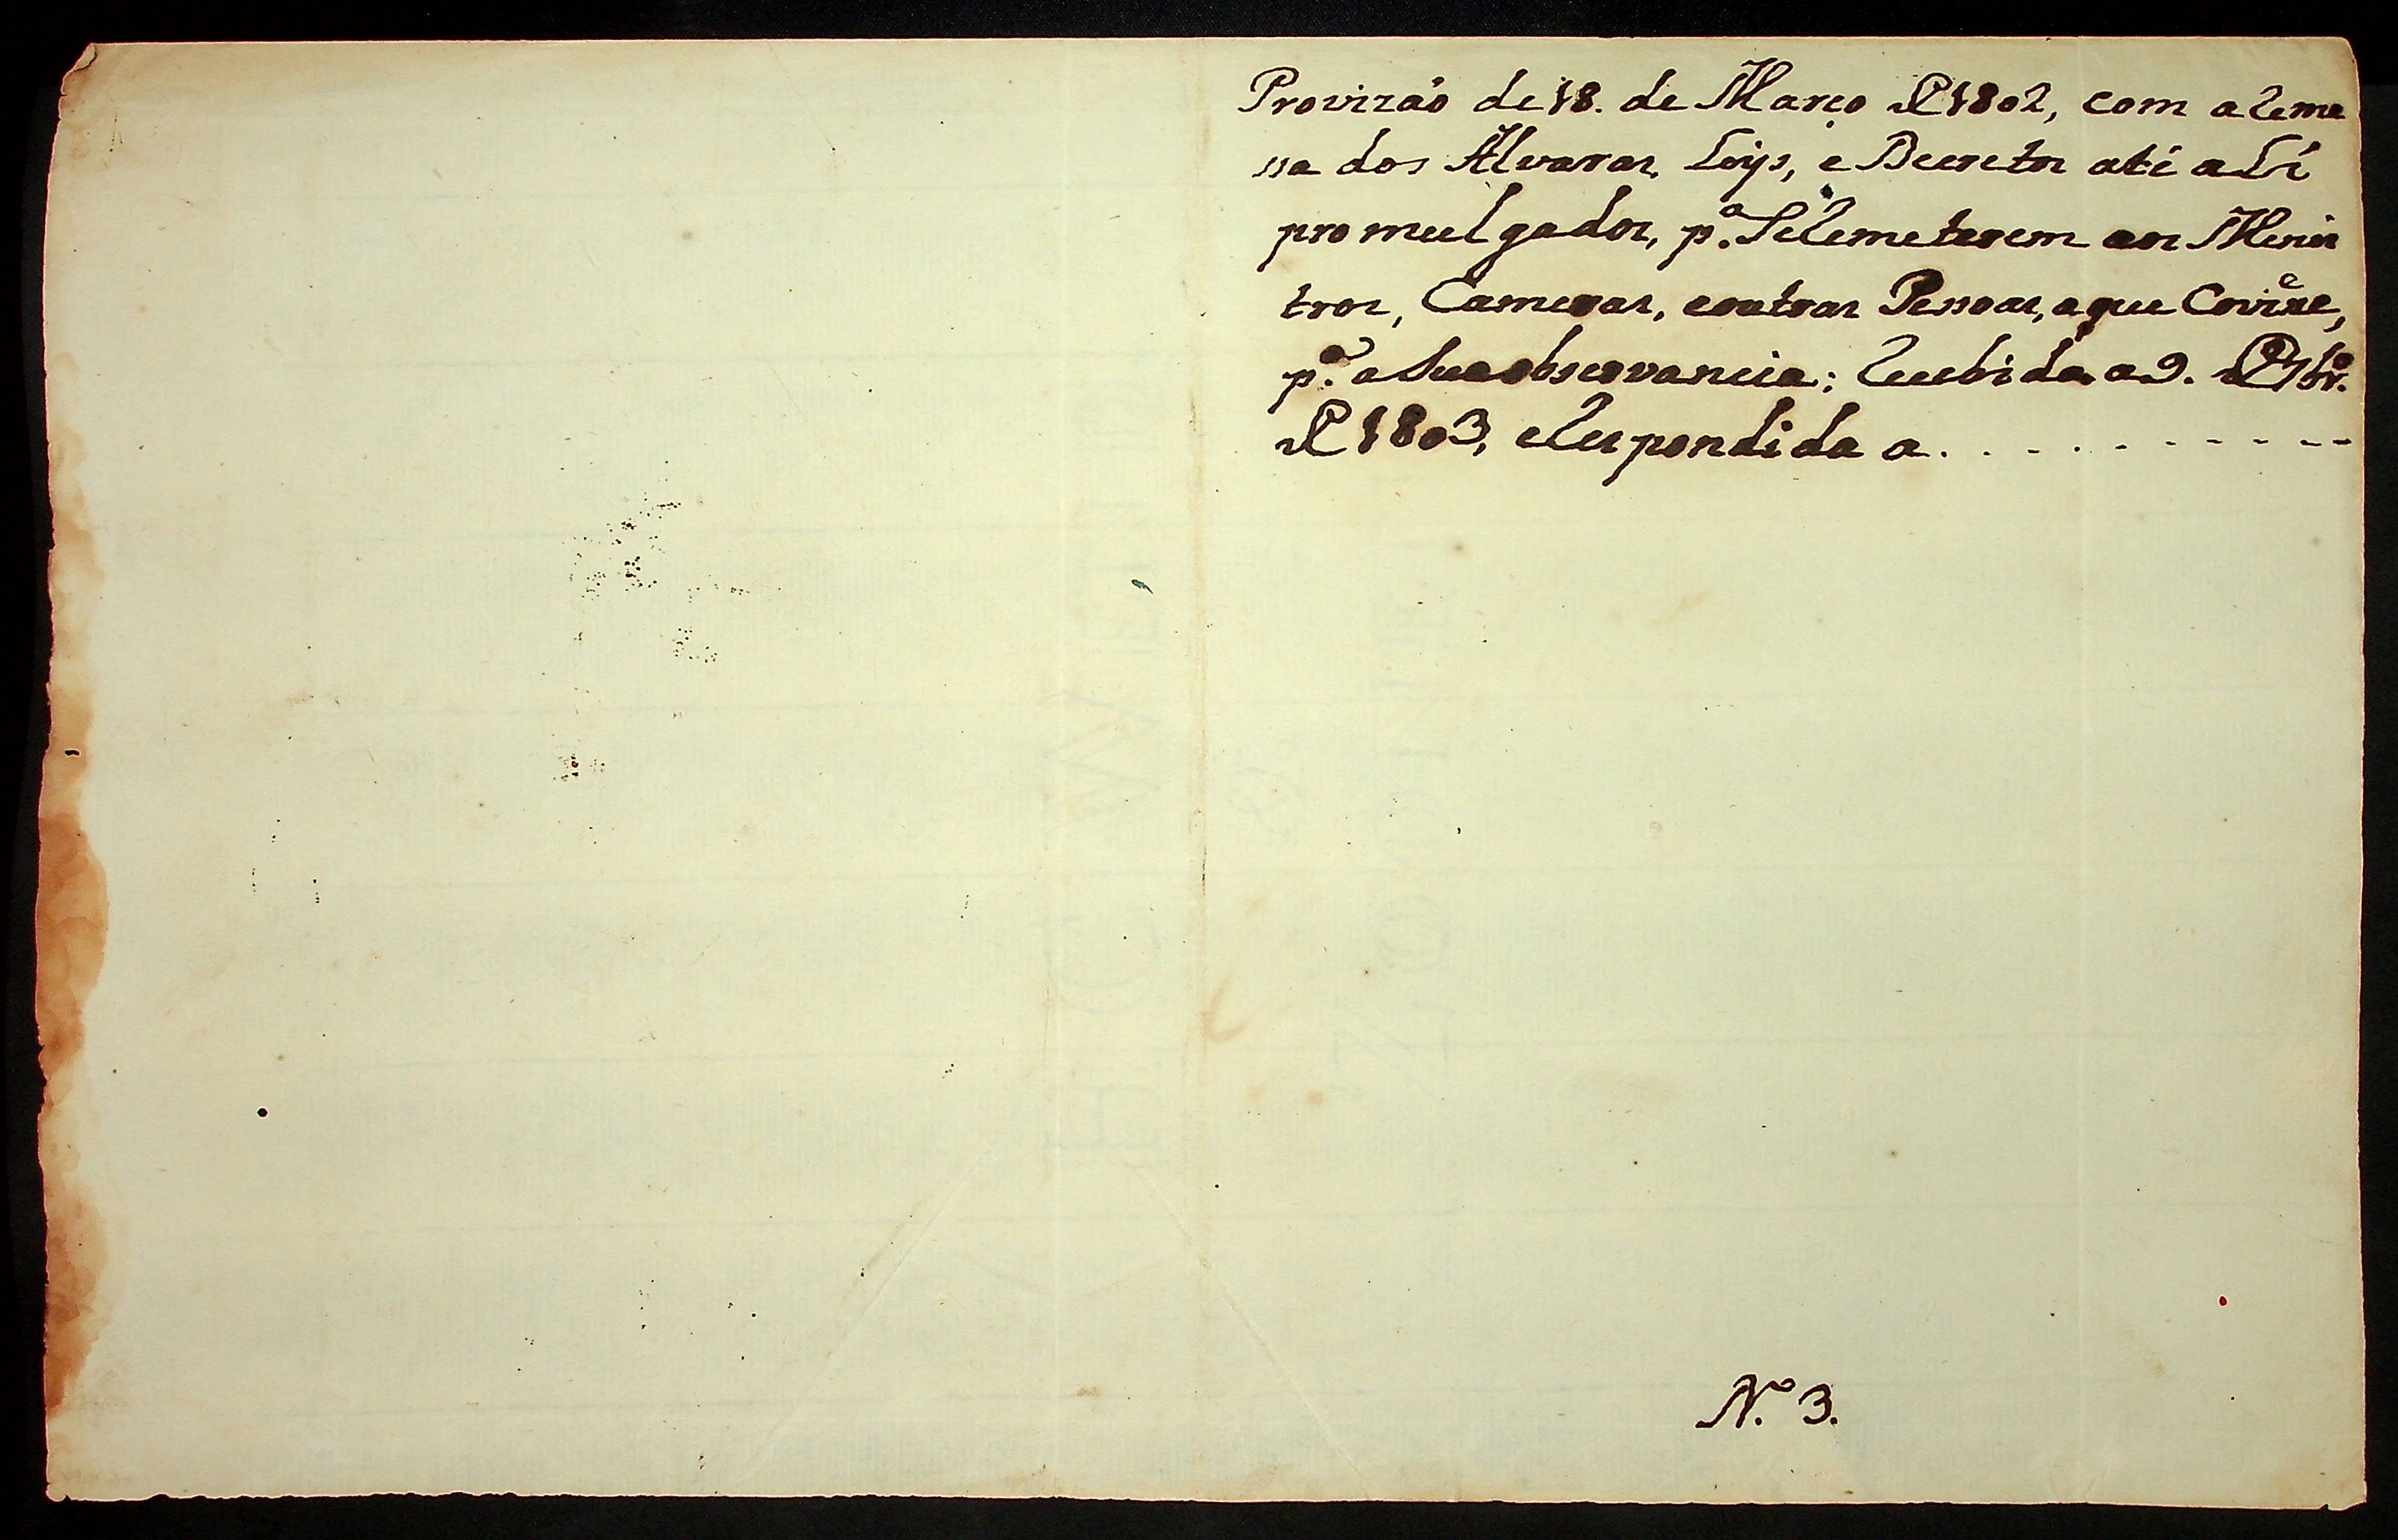 Provizaõ de 18. de Março de 1802, com a Reme
ssa dos Alvaras, Leys, e Decretos até alí
promulgados, p.ª Se Remeterem aos Minis
tros, Cameras, e outras Pessoas, a que Coviese,
p.ª a Sua observancia; Recebida a 9. de 7br.º
de 1803, e Respondida a . . . . . - - - - - -
N.º 3.